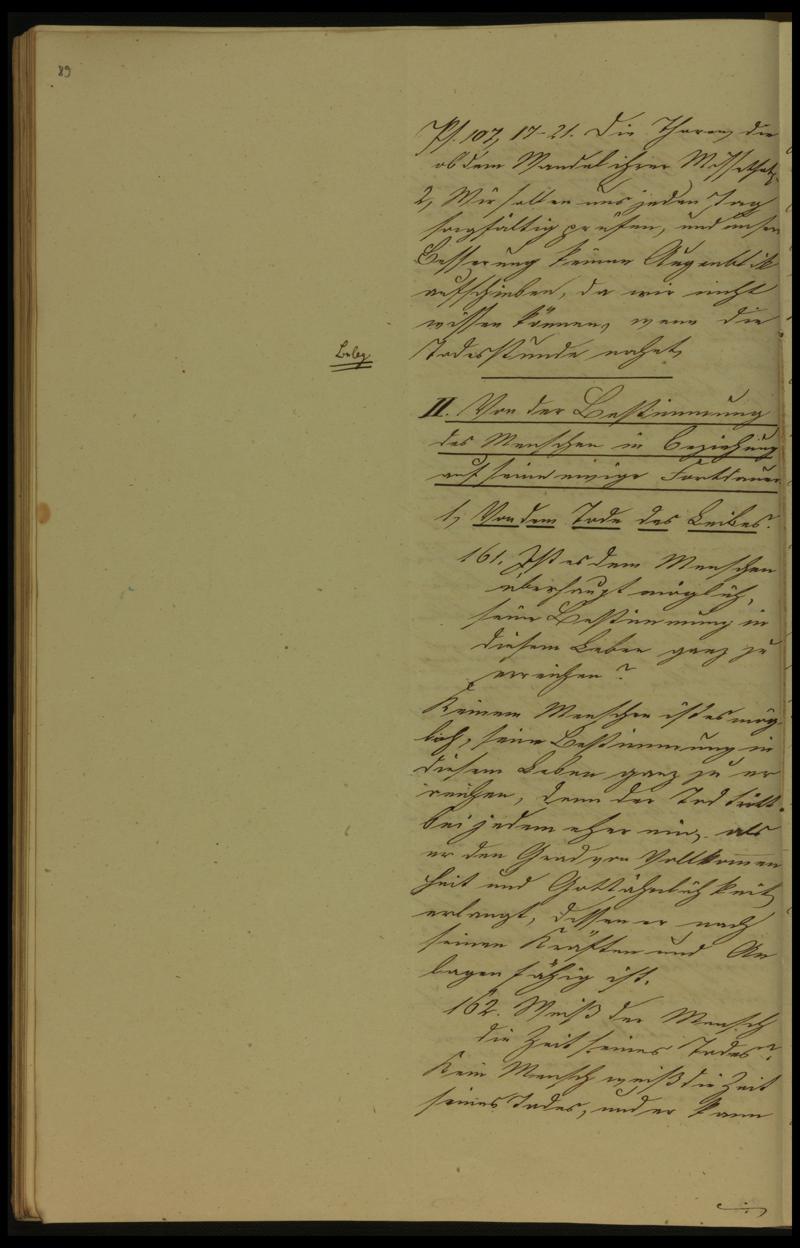 89
Ps. 107, 17-21. Die Thoren, die
ob dem Wandel ihrer Missethat
2, Wir sollen uns jeden Tag
sorgfältig prüfen, und unsere
Besserung keinen Augenblik
aufschieben, da wir nicht
wissen können, wann die
Todesstunde nahet,
Beleg
II. Von der Bestimmung
des Menschen in Beziehung
auf seine ewige Fortdauer
1, Von dem Tode des Leibes.
161. Ist es dem Menschen
überhaupt möglich,
seine Bestimmung in
diesem Leben ganz zu
erreichen?
Keinem Menschen ist es mög
lich, seine Bestimmung in
diesem Leben ganz zu er
reichen, denn der Tod tritt
bei jedem eher ein, als
er den Grad von Vollkommen
heit und Gottähnlichkeit
erlangt, dessen er nach
seinen Kräften und An
lagen fähig ist.
162. Weiß der Mensch
die Zeit seines Todes?
Kein Mensch weiß die Zeit
seines Todes, und er kann